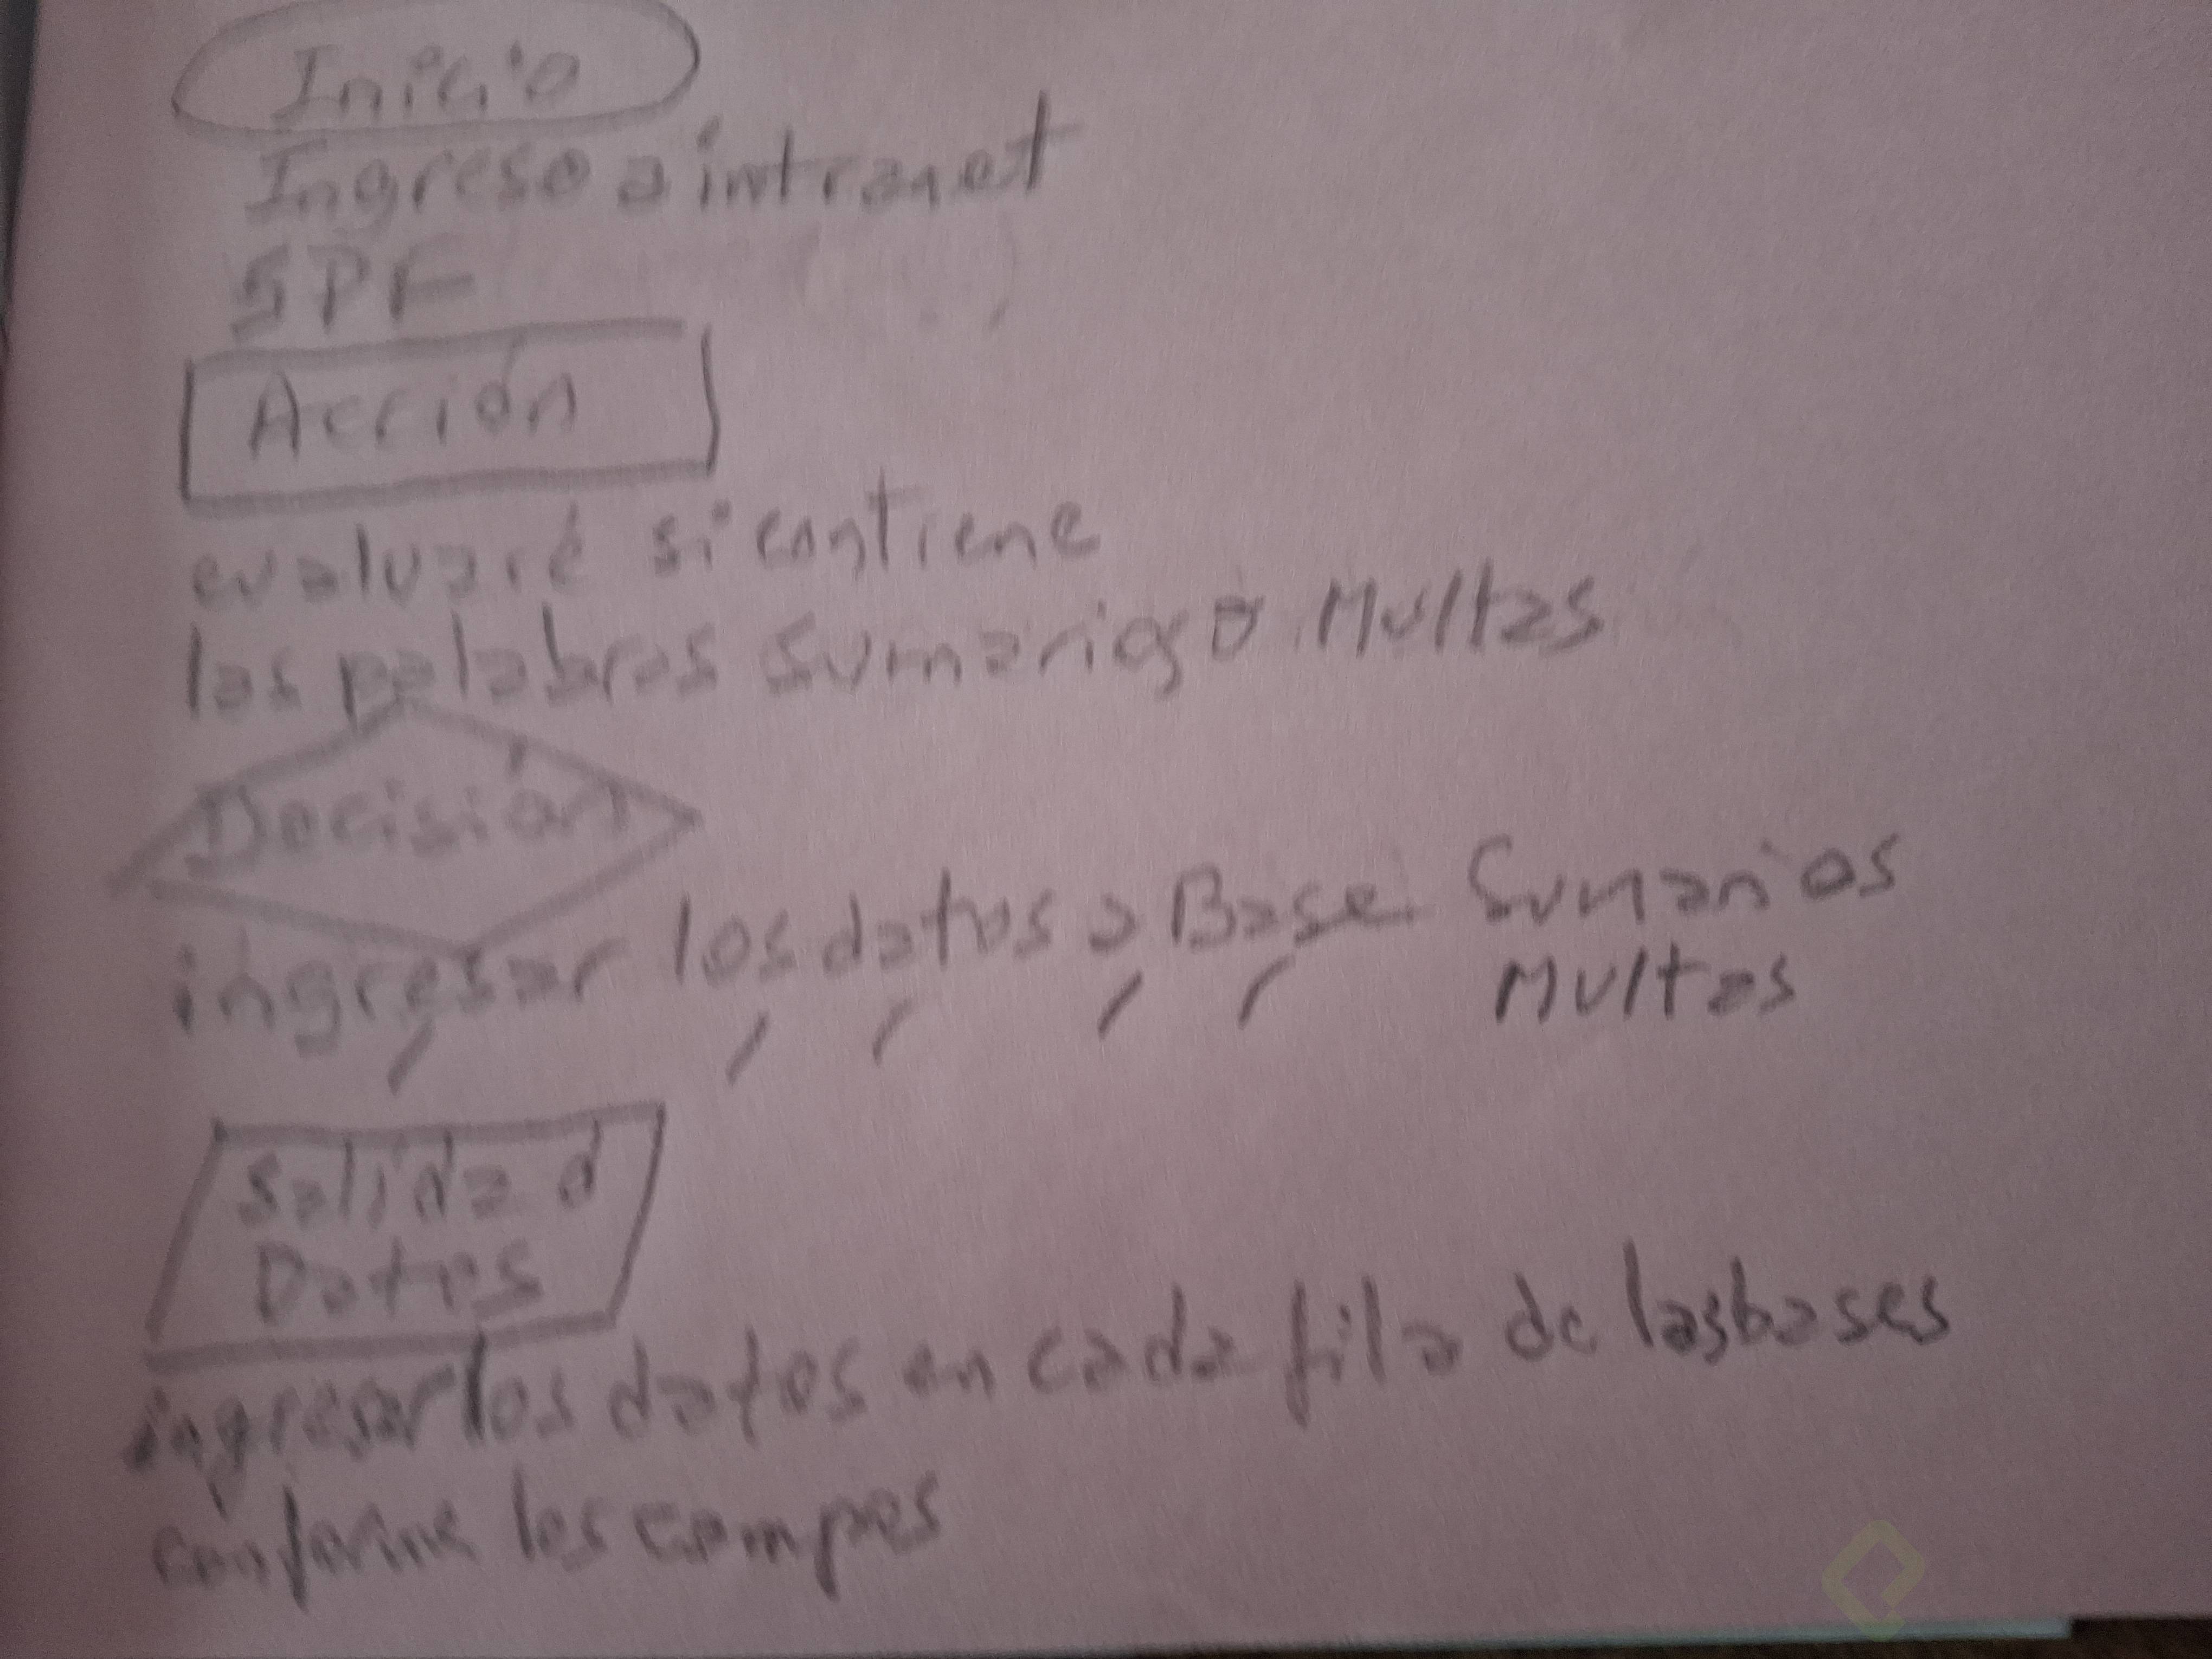 Inicio
Ingreso a intranet
SPF
Acción
evaluaré si contiene
las palabras sumarios o Multas
Decisión
ingresar los datos a Base Sumarios
Multas
Salida d
Datos
ingresar los datos en cada fila de las bases
conforme los campos